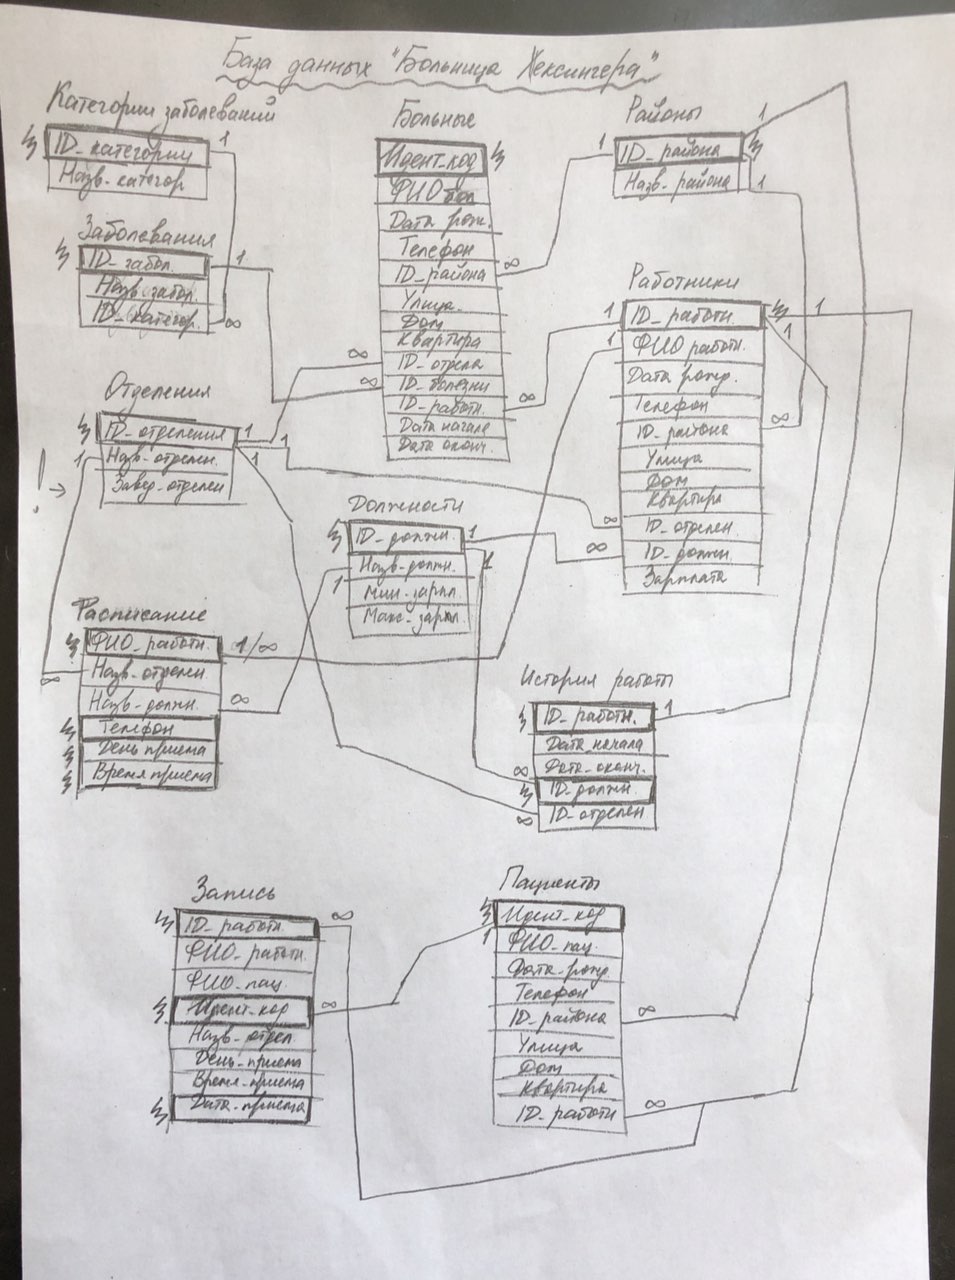 База данных "Больница Хексингера"
Категории заболеваний
ID_категории
Назв_категор
1
Заболевания
ID_забол.
Назв_забол.
ID_категор.
1
∞
Отделения
ID_отделения
Назв_отделен.
Завед_отделен
1
1
1
1
!
Больные
Идент_код
ФИО бол
Дата рож.
Телефон
ID_района
Улица
Дом
Квартира
ID_отдела
ID_болезни
ID_работн.
Дата начале
Дата оконч.
∞
∞
∞
∞
Районы
ID_района
Назв_района
1
1
1
Работники
ID_работн.
ФИО работн.
Дата рожд.
Телефон
ID_района
Улица
Дом
Квартира
ID_отделен.
ID_должн.
Зарплата
1
1
1
1
∞
∞
∞
Должности
ID_должн.
Назв_должн.
Мин_зарпл.
Макс_зарпл.
1
1
1
Расписание
ФИО_работн.
Назв_отделен.
Назв_должн.
Телефон
День приема
Время приема
1/∞
∞
∞
История работы
ID_работн.
Дата_начала
Дата_оконч.
ID_должн.
ID_отделен
1
∞
∞
Запись
ID_работн
ФИО_работн.
ФИО_пац.
Идент_код
Назв_отдел
День_приема
Время_приема
Дата_приема
∞
∞
Пациенты
Идент_код
ФИО_пац.
Дата_рожд.
Телефон
ID_района
Улица
Дом
Квартира
ID_работн
1
∞
∞